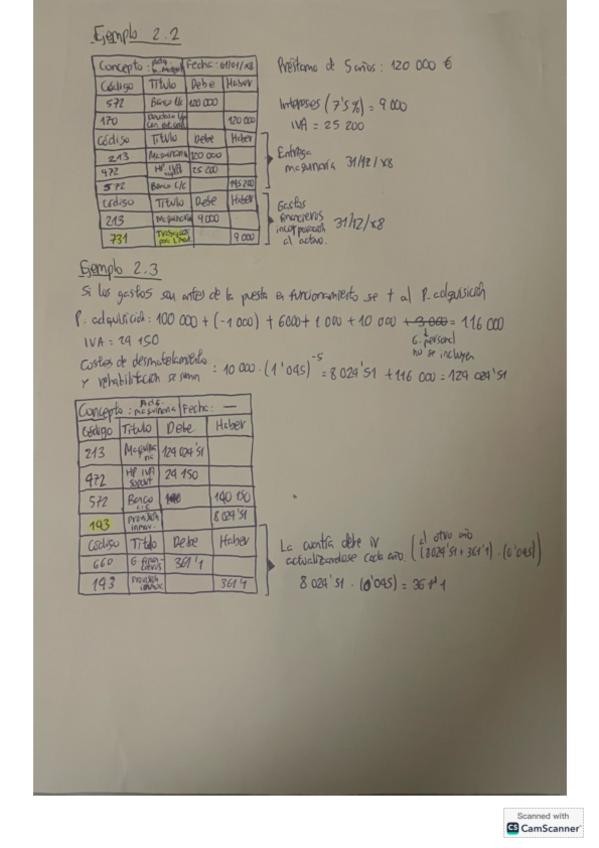 Ejemplo 2.2
Concepto: Adq. Maqui Fecha: 01/01/x8
Código Título Debe Haber
572 Banco c/c 120 000
170 120 000
Código Título Debe Haber
213 Maquinaria 120 000
472 HP IVA 25 200
572 Banco c/c 145 200
Código Título Debe Haber
213 Maquinaria 9 000
731 Trabajos 9 000
Préstamo de 5 años: 120 000 €
Intereses (7'5 %) = 9 000
IVA = 25 200
Entrega
maquinaria 31/12/x8
Gastos
financieros
incorporación
al activo. 31/12/x8
Ejemplo 2.3
Si los gastos son antes de la puesta en funcionamiento se + al P. adquisición
P. adquisición: 100 000 + (-1 000) + 6000 + 1 000 + 10 000 + 3 000 = 116 000
G. personal
no se incluyen
IVA = 24 150
Costes de desmantelamiento
y rehabilitación se suman : 10 000 · (1'045)^-5 = 8 024'51 + 116 000 = 124 024'51
Concepto: Adq. maquinaria Fecha: —
Código Título Debe Haber
213 Maquinaria 124 024'51
472 HP IVA soport 24 150
572 Banco c/c 140 150
143 Provisión inmov. 8 024'51
Código Título Debe Haber
660 G. financieros 361'1
143 Provisión inmov 361'1
La cuantía debe ir
actualizandose cada año. (al otro año (8024'51 + 361'1) · (0'045))
8 024'51 · (0'045) = 361'1
Scanned with
CS CamScanner